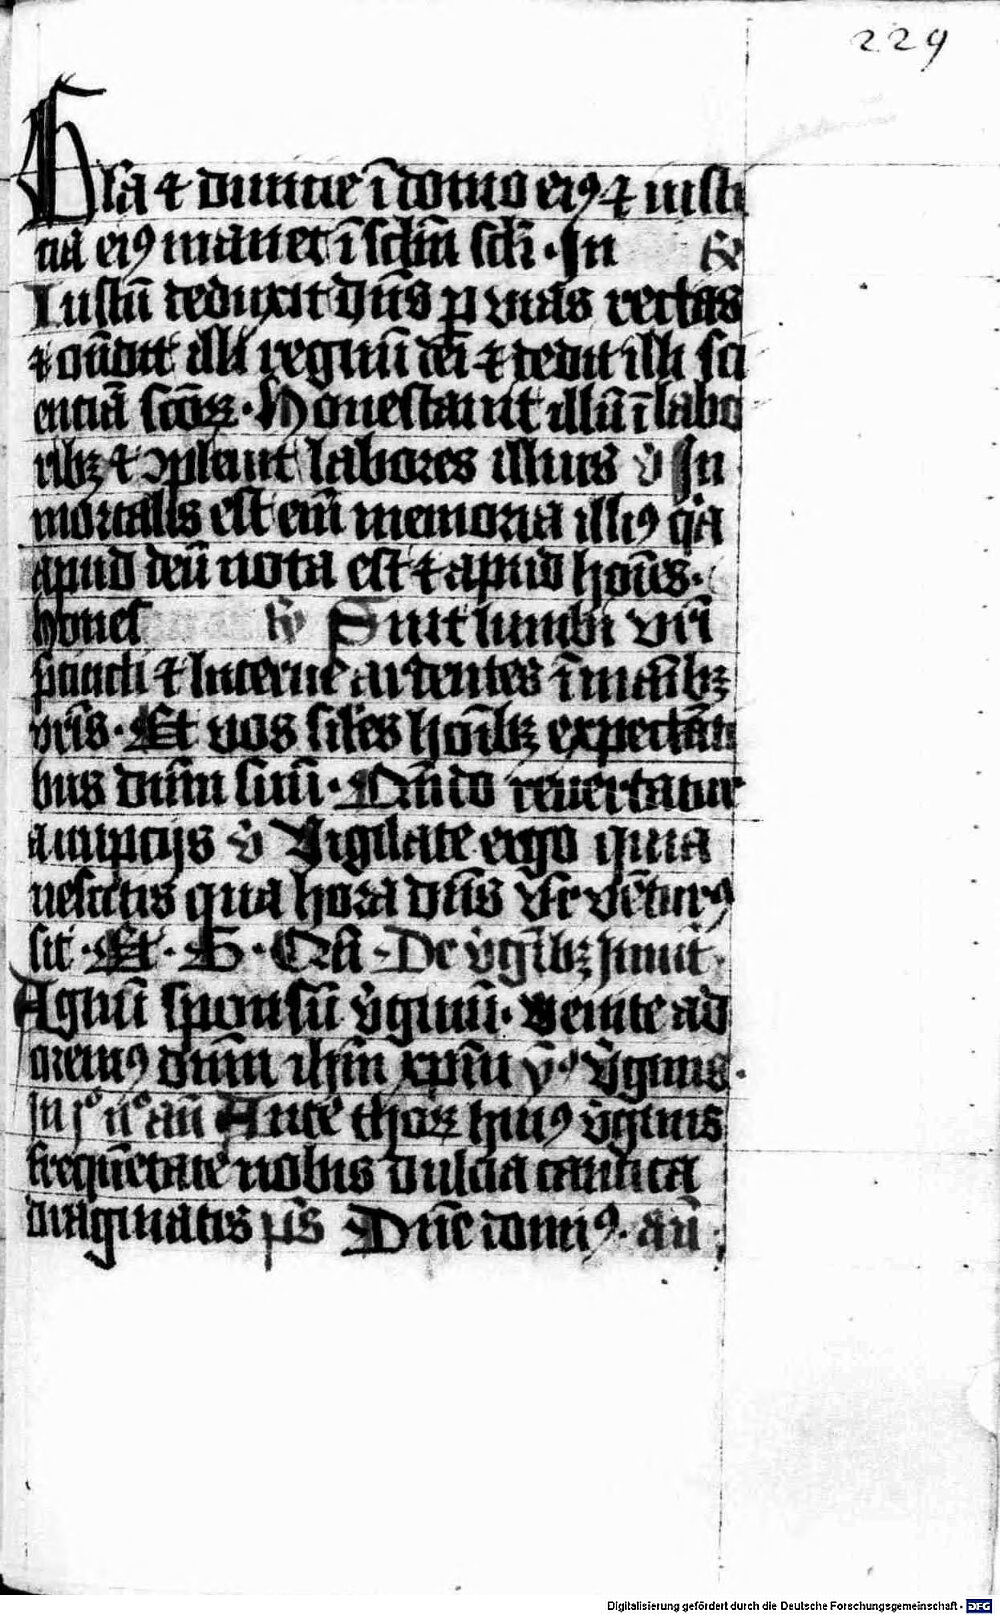 229
Gl̄ia ⁊ diuitie ī domo eiꝰ ⁊ iusti
cia eiꝰ manet ī sclm̄ scl̄i · In ℟
Iustū deduxit dn̄s ꝑ vias rectas
⁊ on̄dit illi regnū dei ⁊ dedit illi sci
enciā scōꝝ · Honestauit illū ī labo
ribꝫ ⁊ ꝯpleuit labores illius v̄ In
mortalis est em̄ memoria illiꝰ q̄a
apud deū nota est ⁊ apud hoīes ·
hones ℟ Sint lumbi vr̄i
p̄cincti ⁊ lucerne ardentes ī manibꝫ
vr̄is · Et vos siles hoībꝫ expectāti
bus dn̄m suū · Qn̄do reuertatur
a nupcijs v̄ Vigilate ergo quia
nescitis qua hora dn̄s vr̄ vēturꝰ
sit · Et · G · Orā · De v̄gībꝫ Inuit̄
Agnū sponsū v̄ginū · venite ad
oremꝰ dn̄m ihm̄ xpm̄ v̄ginis
In jº nº an̄ Ante thoꝝ huiꝰ v̄ginis
frequētate nobis dulcia cantica
dragmatis p̄s Dn̄e domiꝰ · an̄
Digitalisierung gefördert durch die Deutsche Forschungsgemeinschaft - DFG